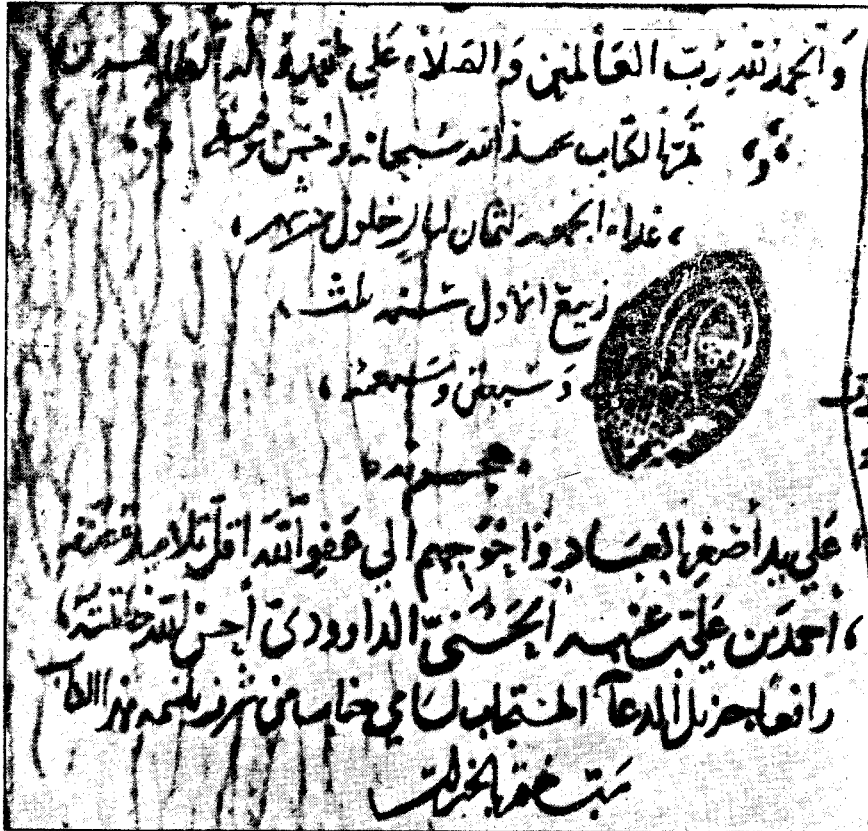 والحمد لله رب العالمين والصلاة علي محمد واله الطاهرين
تم الكتاب بحمد الله سبحانه وحسن توفيقه
غداه الجمعه لثمان ليال خلون من شهر
ربيع الاول سنه ثلث
وسبعين وسبعمئة
هجريه
علي يد أضعف العباد وأحوجهم الي عفو الله اقل تلاميذ مصنفه
أحمد بن علي بن عنبه الحسني الداوودي أحسن الله خاتمته
رافعا جزيل الدعآ المستجاب لسامي جناب من شرفه بنسخه هذا الكتاب